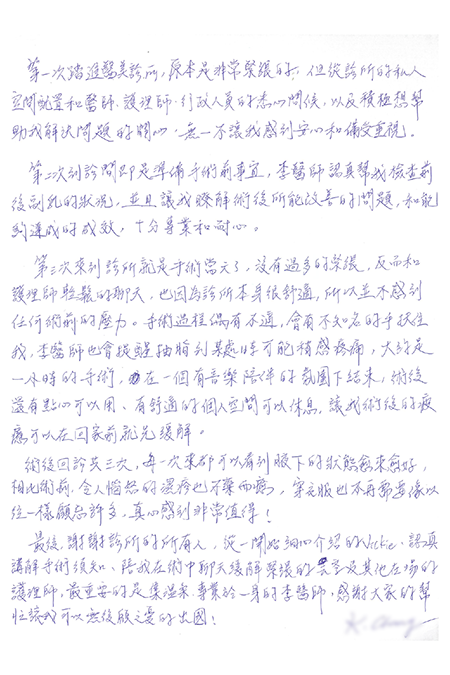 第一次踏進醫美診所,原本是非常緊張的,但從診所的私人
空間配置和醫師、護理師、行政人員的悉心問候,以及積極想幫
助我解決問題的關心,無一不讓我感到安心和備受重視。
第二次到診間即是準備手術前事宜,李醫師認真幫我檢查前
後副乳的狀況,並且讓我瞭解術後所能改善的問題,和能
夠達成的成效,十分專業和耐心。
第三次來到診所就是手術當天了,沒有過多的緊張,反而和
護理師輕鬆的聊天,也因為診所本身很舒適,所以並不感到
任何術前的壓力。手術過程偶有不適,會有不知名的手扶住
我,李醫師也會提醒抽脂到某處時可能稍感疼痛,大約是
一小時的手術,在一個有音樂陪伴的氛圍下結束,術後
還有點心可以用、有舒適的個人空間可以休息,讓我術後的疲
憊可以在回家前就先緩解。
術後回診共三次,每一次來都可以看到腋下的狀態愈來愈好,
相比術前,令人惱怒的濕疹也不藥而癒,穿衣服也不再需要像以
往一樣顧忌許多,真心感到非常值得!
最後,謝謝診所的所有人,從一開始細心介紹的Vickie、認真
講解手術須知、陪我在術中聊天緩解緊張的 及其他在場的
護理師,最重要的是集溫柔、專業於一身的李醫師,感謝大家的幫
忙讓我可以無後顧之憂的出國!